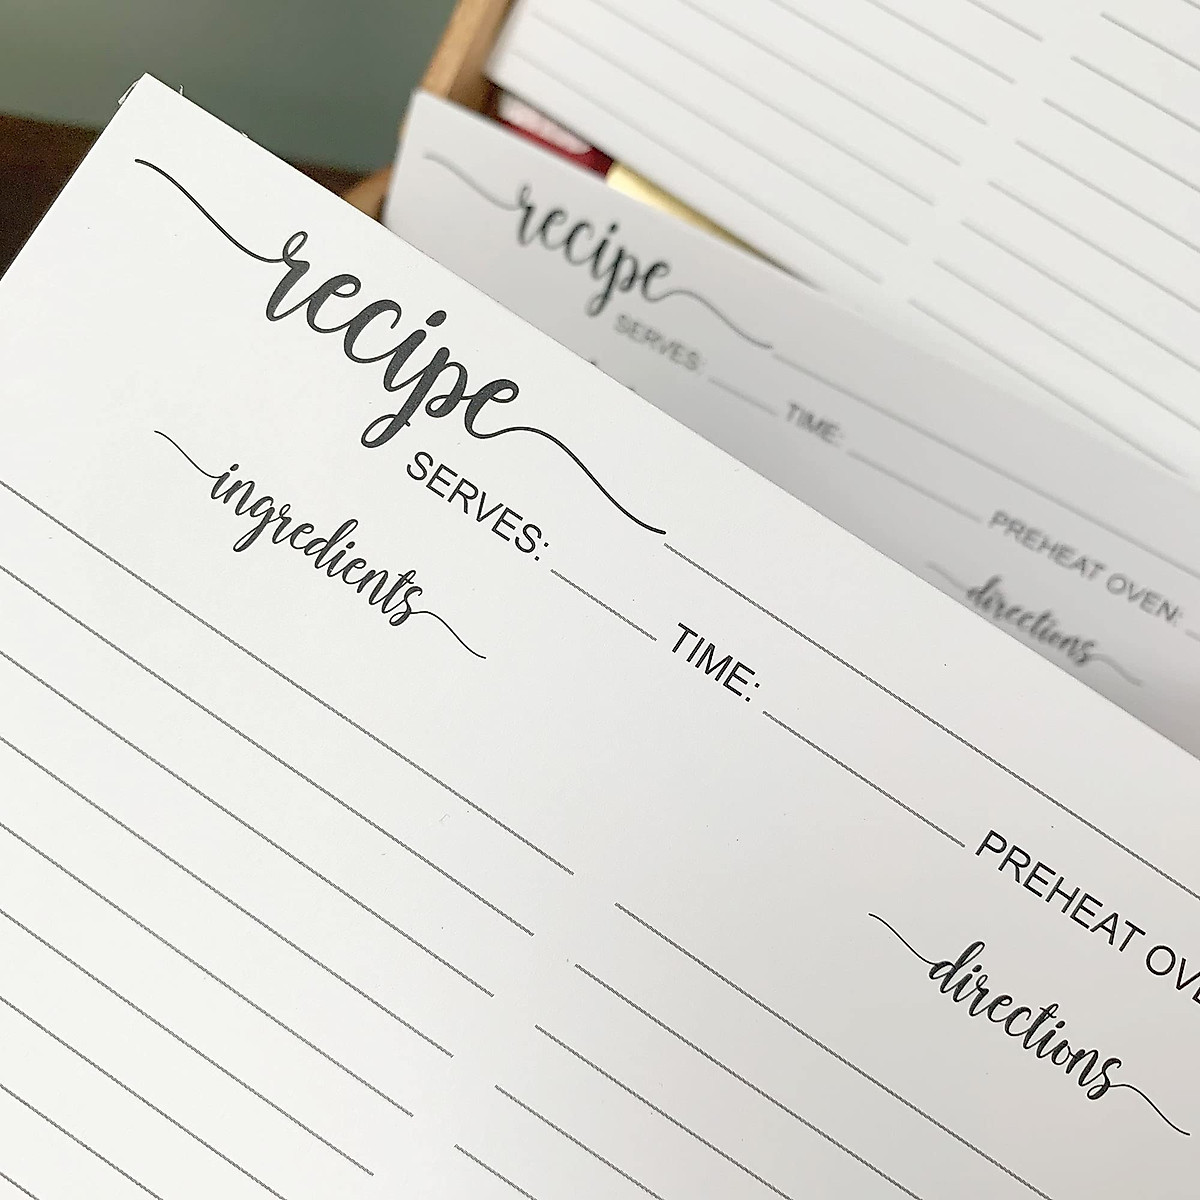 recipe
SERVES: TIME: PREHEAT OVE
ingredients
directions
recipe
SERVES: TIME: PREHEAT OVEN:
directions